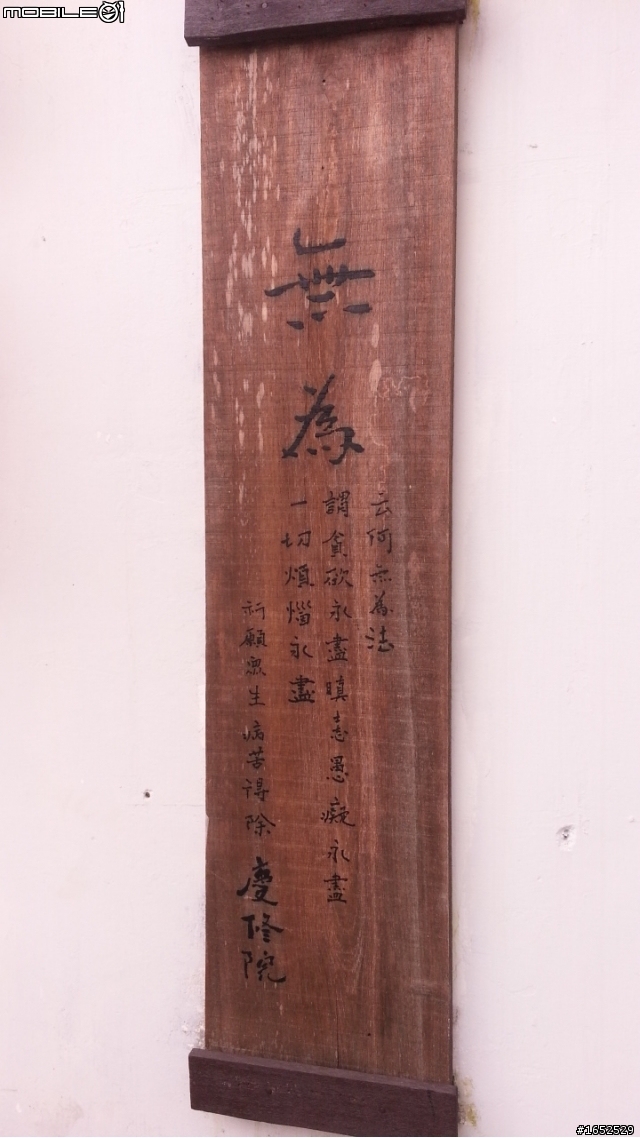 MOBILE01
無為
云何無為法
謂貪欲永盡瞋志愚癡永盡
一切煩惱永盡
祈願眾生病苦得除
慶修院
#1652529